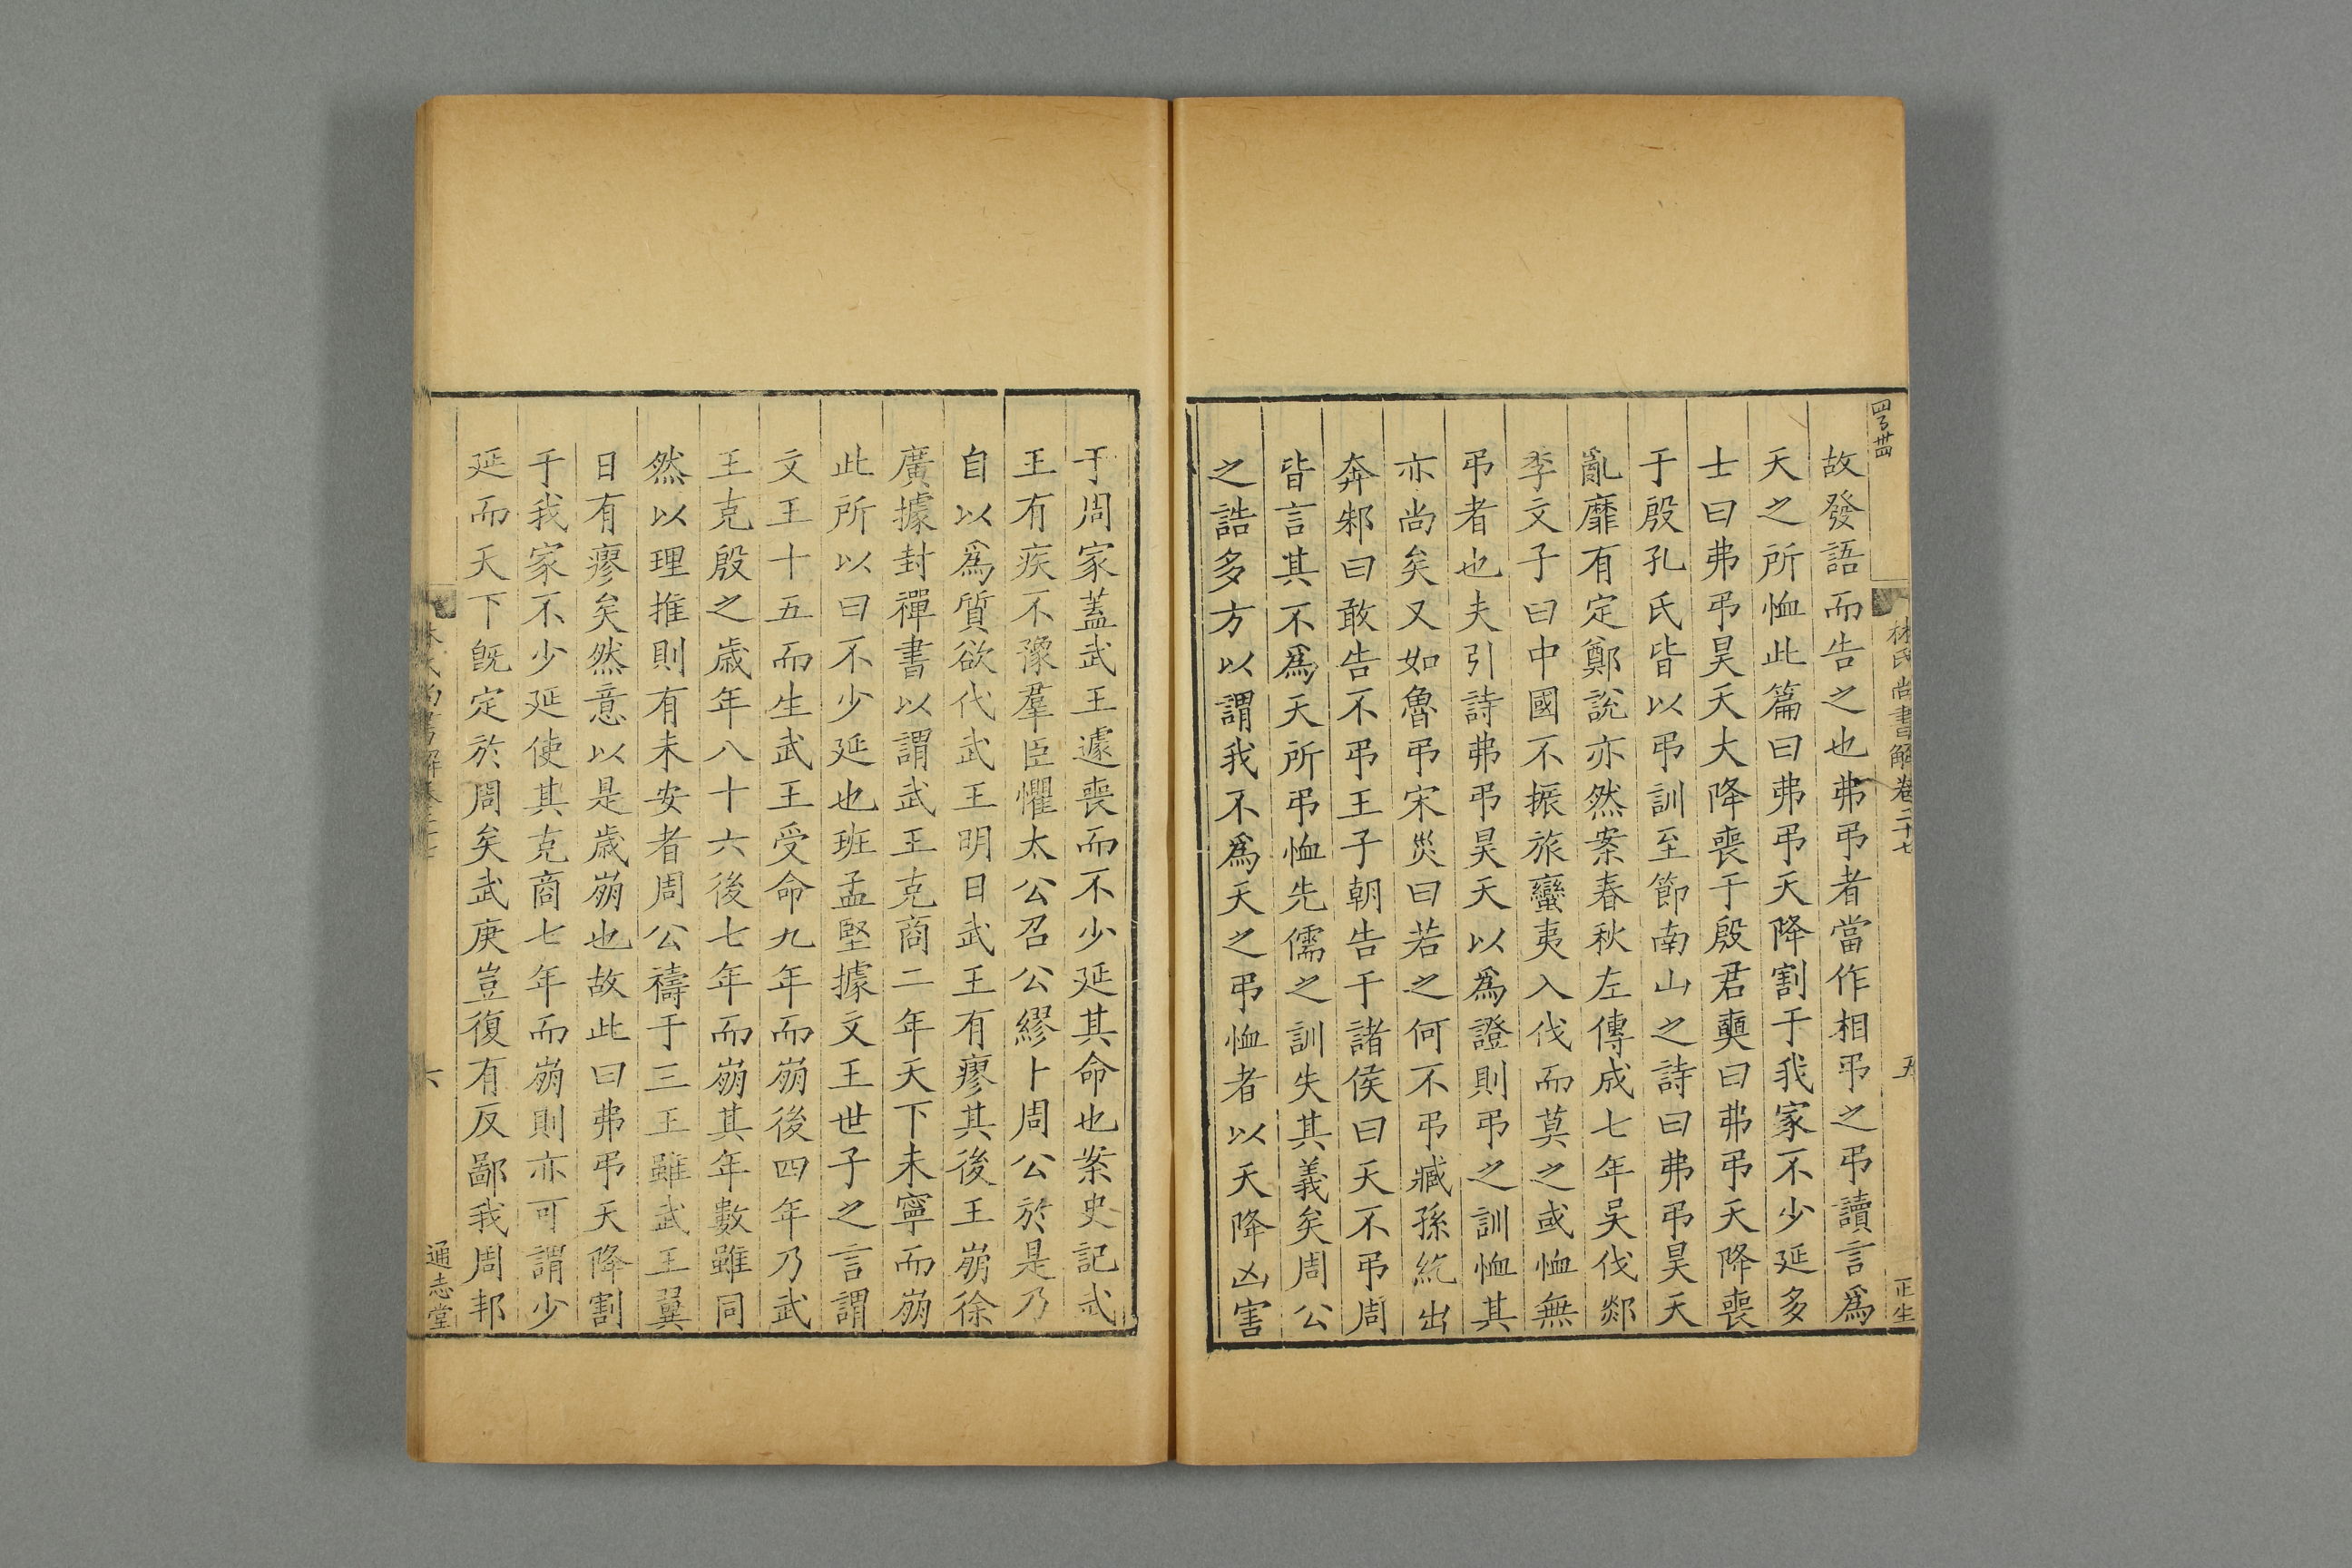 林氏尚書解卷二十七
五
正生
故發語而告之也弗弔者當作相弔之弔讀言爲
天之所恤此篇曰弗弔天降割于我家不少延多
士曰弗弔旻天大降喪于殷君奭曰弗弔天降喪
于殷孔氏皆以弔訓至節南山之詩曰弗弔昊天
亂靡有定鄭說亦然案春秋左傳成七年吳伐郯
季文子曰中國不振旅蠻夷入伐而莫之或恤無
弔者也夫引詩弗弔昊天以爲證則弔之訓恤其
亦尚矣又如魯弔宋災曰若之何不弔臧孫紇出
奔邾曰敢告不弔王子朝告于諸侯曰天不弔周
皆言其不爲天所弔恤先儒之訓失其義矣周公
之誥多方以謂我不爲天之弔恤者以天降凶害
于周家蓋武王遽喪而不少延其命也案史記武
王有疾不豫羣臣懼太公召公繆卜周公於是乃
自以爲質欲代武王明日武王有瘳其後王崩徐
廣據封禪書以謂武王克商二年天下未寧而崩
此所以曰不少延也班孟堅據文王世子之言謂
文王十五而生武王受命九年而崩後四年乃武
王克殷之歲年八十六後七年而崩其年數雖同
然以理推則有未安者周公禱于三王雖武王翼
日有瘳矣然意以是歲崩也故此曰弗弔天降割
于我家不少延使其克商七年而崩則亦可謂少
延而天下旣定於周矣武庚豈復有反鄙我周邦
六
通志堂